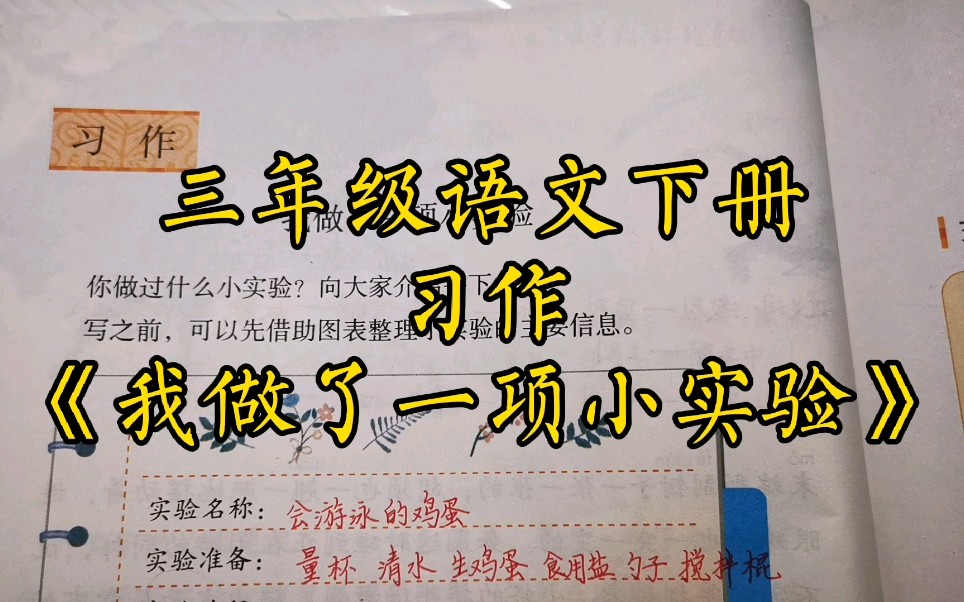 习作
三年级语文下册
你做过什么小实验？向大家介
习作
写之前，可以先借助图表整理
要信息。
《我做了一项小实验》
实验名称：会游泳的鸡蛋
实验准备：量杯 清水 生鸡蛋 食用盐 勺子 搅拌棍